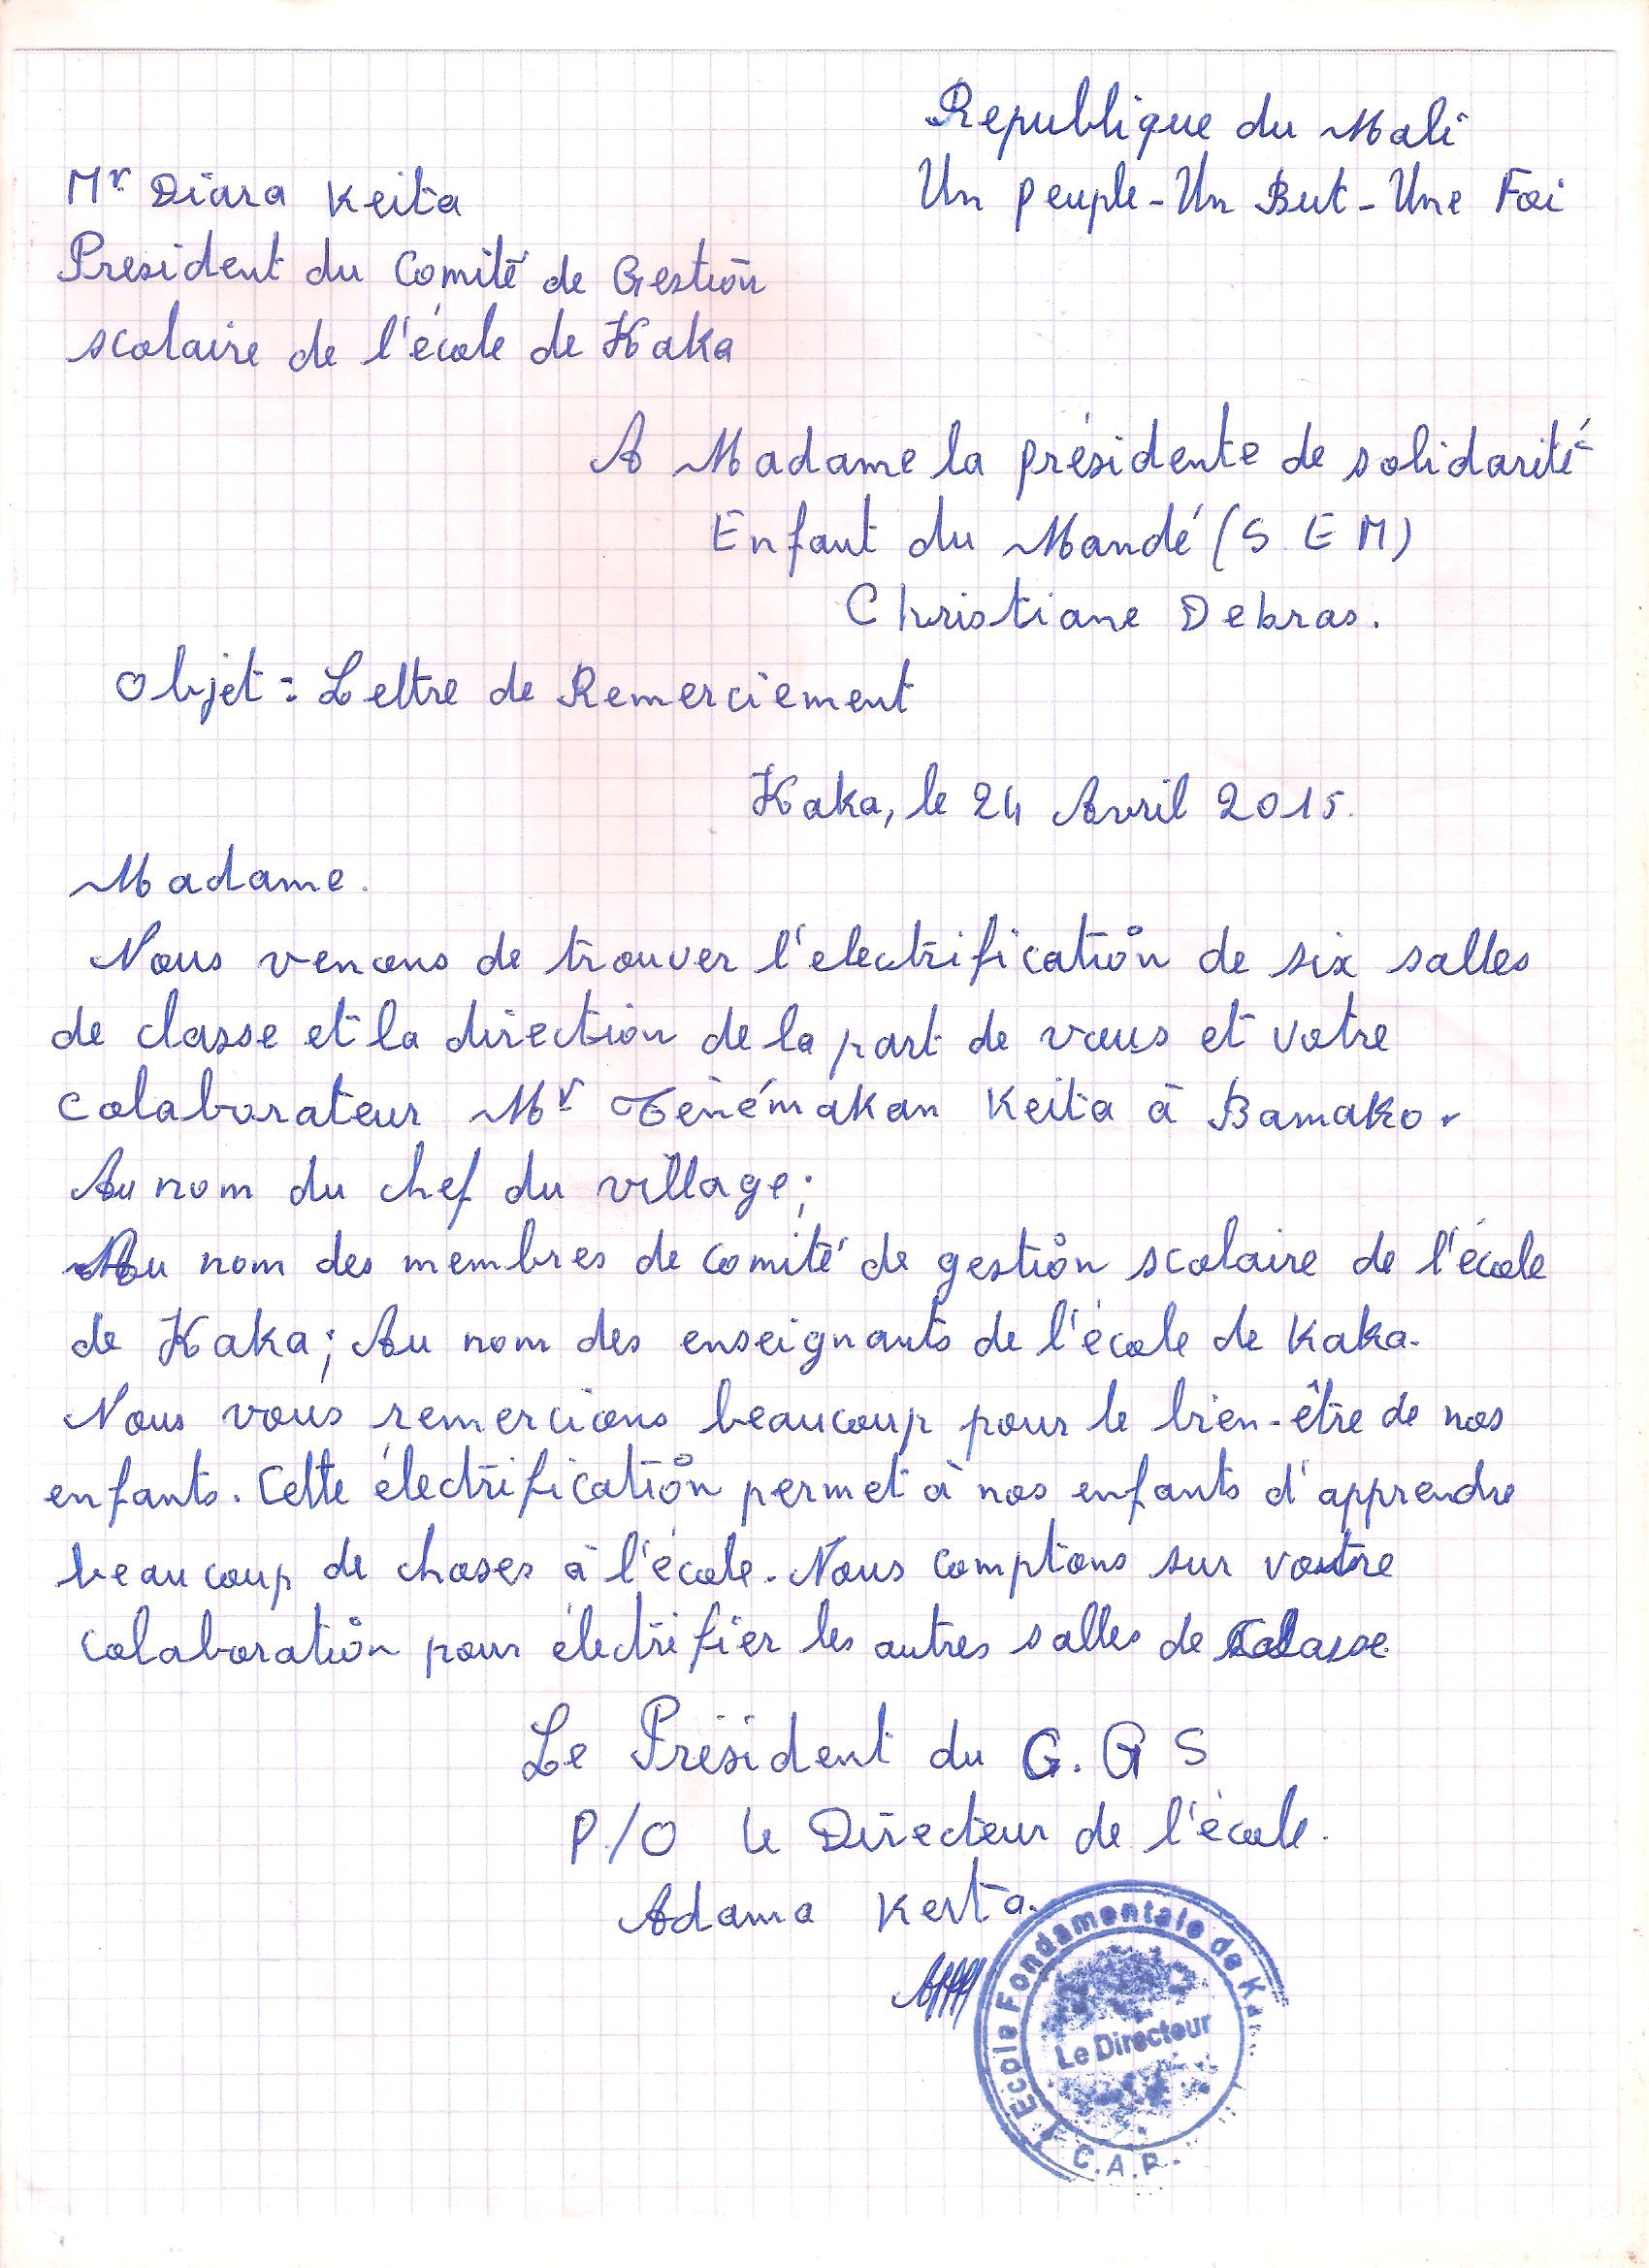 Republique du Mali
Un peuple - Un But - Une Foi
Mr Diara Keita
President du Comité de Gestion
scolaire de l'école de Kaka
A Madame la présidente de solidarité
Enfant du Mandé (S E M)
Christiane Debras.
Objet : Lettre de Remerciement
Kaka, le 24 Avril 2015.
Madame.
Nous venons de trouver l'electrification de six salles
de classe et la direction de la part de vous et votre
colaborateur Mr Tènémakan Keita à Bamako.
Au nom du chef du village ;
Au nom des membres de comité de gestion scolaire de l'école
de Kaka ; Au nom des enseignants de l'école de Kaka.
Nous vous remercions beaucoup pour le bien-être de nos
enfants. Cette électrification permet à nos enfants d'apprendre
beaucoup de choses à l'école. Nous comptons sur votre
colaboration pour électrifier les autres salles de classe
Le Président du C.G S
P/O le Directeur de l'école.
Adama Keita.
Ecole Fondamentale de
Le Directeur
C.A.P.